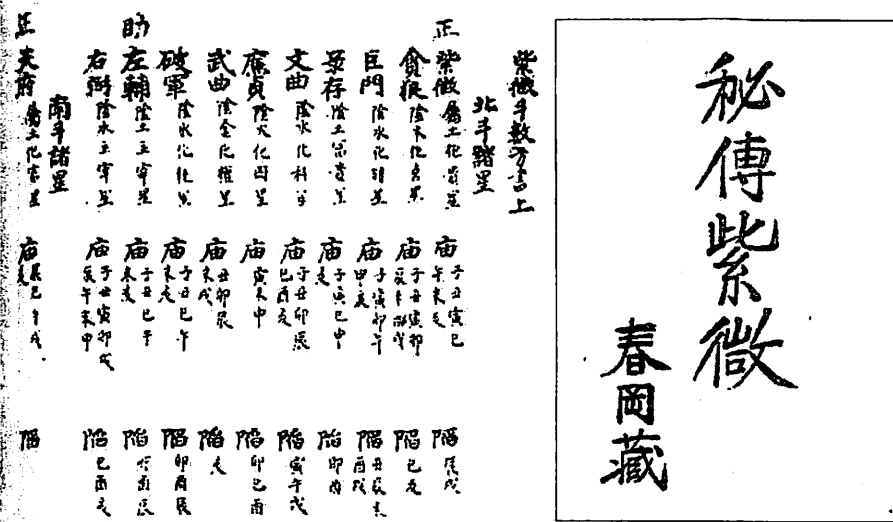 秘傳紫微
春岡藏
紫微斗数全書上
北斗諸星
正 紫微 屬土化貴星 庙 子丑寅巳午未亥 陷 辰戌
貪狼 陰木化 庙 子丑寅卯 陷 巳亥
巨門 陰水化暗星 庙 子寅卯午申亥 陷 丑辰未酉戌
禄存 陰土 庙 子寅巳申亥 陷 卯酉
文曲 陰水化科星 庙 子丑卯辰巳酉亥 陷 寅午戌
廉貞 陰火化囚星 庙 寅未申 陷 卯巳酉
武曲 陰金化權星 庙 丑卯辰未戌 陷 亥
破軍 陰水化耗星 庙 子丑巳午未亥 陷 卯酉辰
助 左輔 陰土主宰星 庙 子丑巳午未亥 陷
右弼 陰水主宰星 庙 子丑寅卯戌辰午未申 陷 巳酉亥
南斗諸星
正 天府 屬土化富星 庙 陷